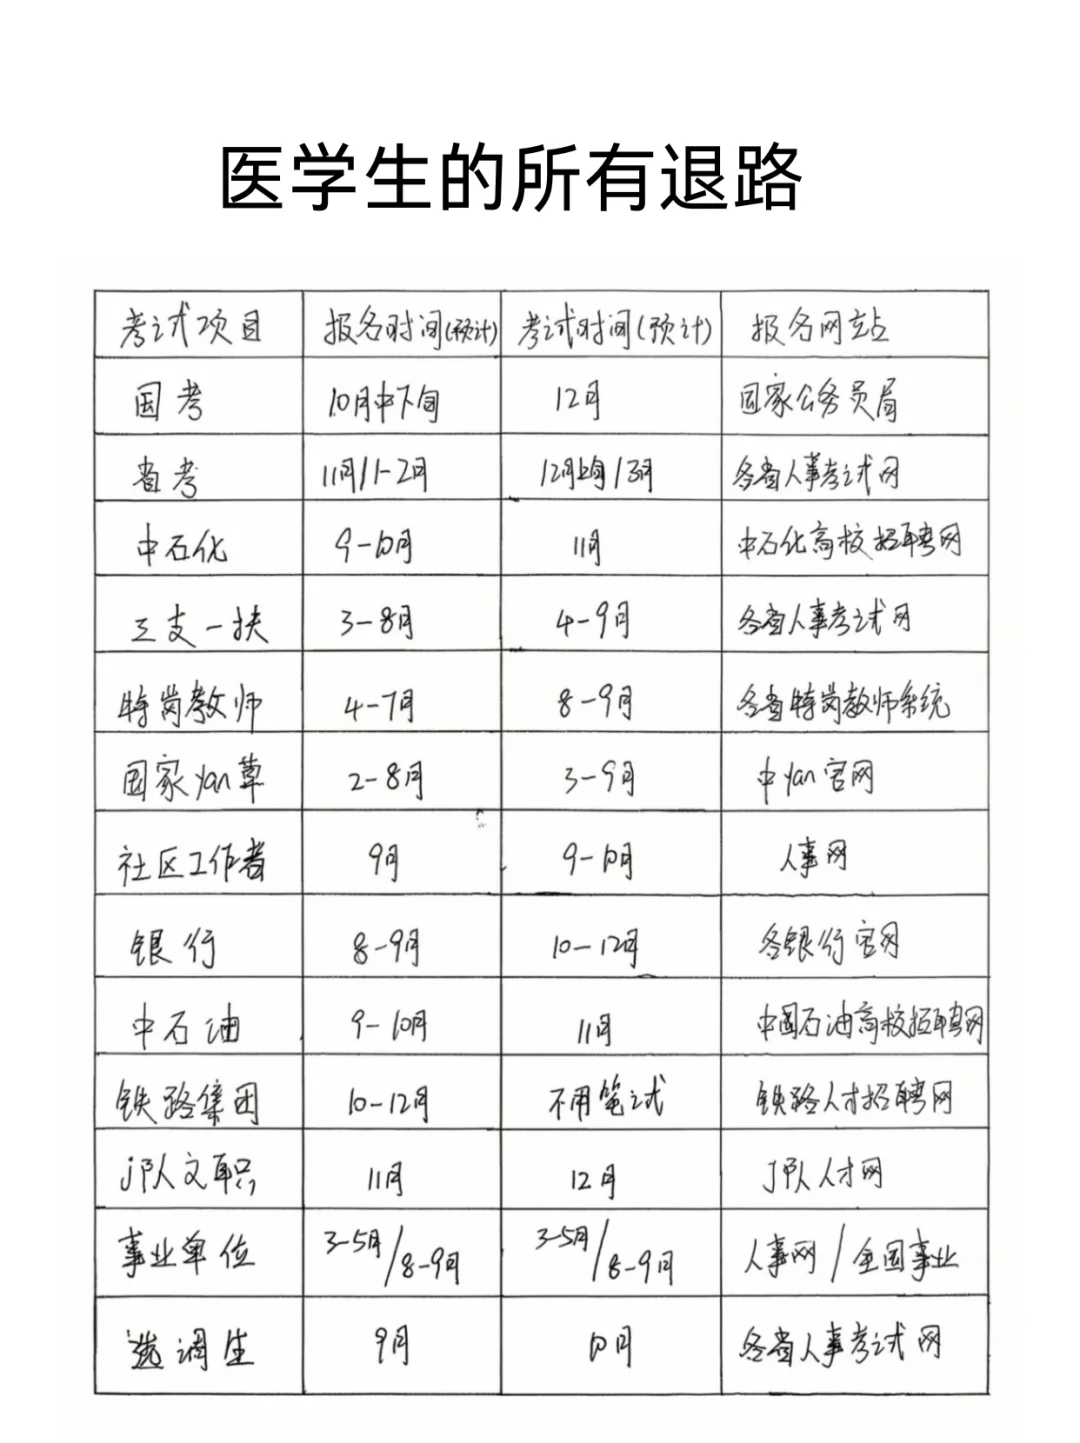 医学生的所有退路
考试项目 报名时间(预计) 考试时间(预计) 报名网站
国考 10月中下旬 12月 国家公务员局
省考 11月/1-2月 12月上旬/3月 各省人事考试网
中石化 9-10月 11月 中石化高校招聘网
三支一扶 3-8月 4-9月 各省人事考试网
特岗教师 4-7月 8-9月 各省特岗教师系统
国家yan草 2-8月 3-9月 中yan官网
社区工作者 9月 9-10月 人事网
银行 8-9月 10-12月 各银行官网
中石油 9-10月 11月 中国石油高校招聘网
铁路集团 10-12月 不用笔试 铁路人才招聘网
j队文职 11月 12月 J队人才网
事业单位 3-5月/8-9月 3-5月/8-9月 人事网/全国事业
选调生 9月 10月 各省人事考试网